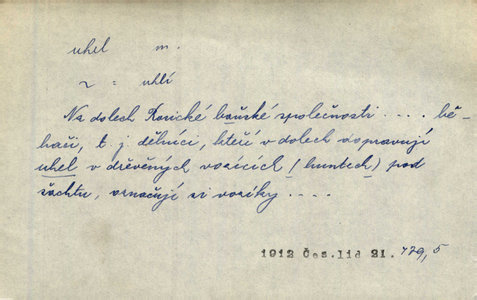 uhel m.
~ = uhlí
Na dolech Rosické báňské společnosti .... bě-
hači, t. j. dělníci, kteří v dolech dopravují
uhel v dřevěných vozících (huntech) pod
šachtu, označují si vozíky ....
1912 Čes.lid 21. 429,5